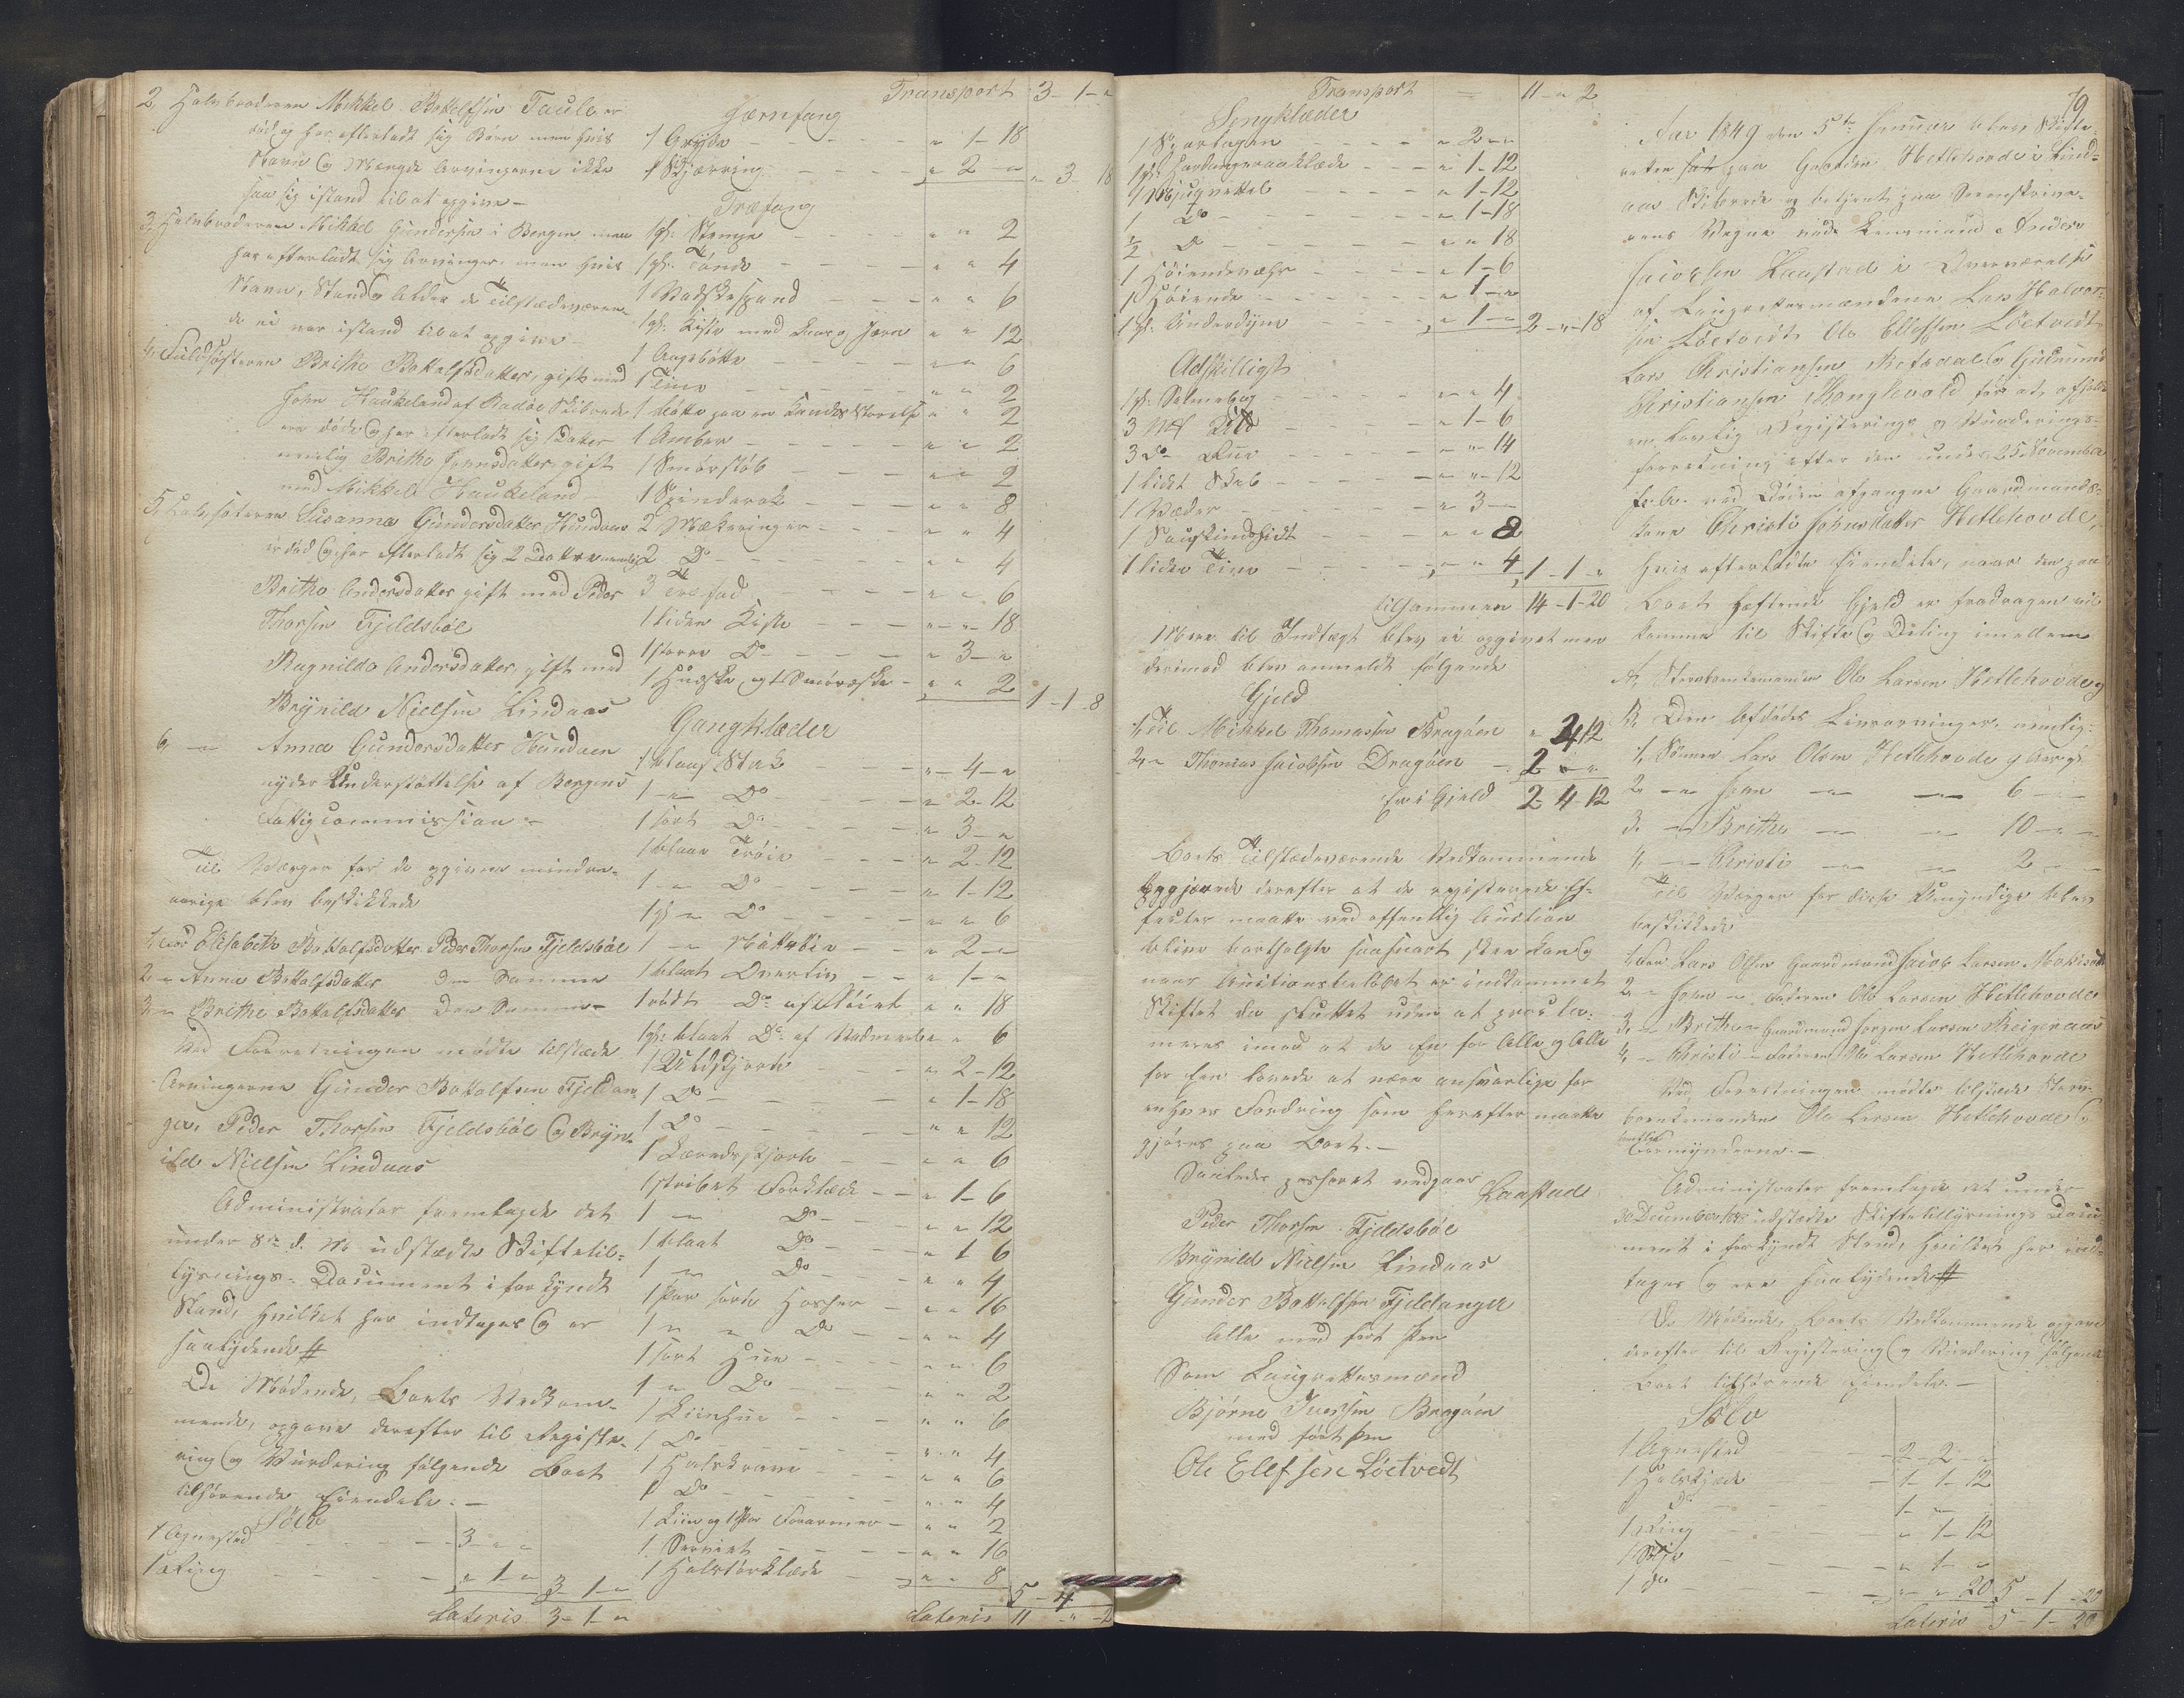 2, Halvbroderen Mikkel Bottolfsen Taule er
død og har efterladt sig Børn men hvis
Navn og Mængde Arvingerne ikke
saa sig istand til at opgive –
3, Halvbroderen Mikkel Gundersen i Bergen men
har efterladt sig Arvinger, men hvis
Navn, Stand og Alder de Tilstædeværen-
de ei var istand til at opgive –
4, Fuldsøsteren Britha Bottolfsdatter, gift med
John Haukeland af Radøe Skibrede
er død og har efterladt sig Datter
nemlig Britha Johnsdatter, gift
med Mikkel Haukeland –
5, Halvsøsteren Susanna Gundersdatter Hundven
er død og har efterladt sig 2 Døttre nemlig
Britha Andersdatter gift med Peder
Thorsen Fjeldsbøe
Ragnilda Andersdatter, gift med
Brynild Nielsen Lindaas
6, – Anna Gundersdatter Hundven
nyder Understøttelse af Bergens
Fattigcommission –
Til Værger for de opgivne mindre-
aarige blev beskikkede
1, for Elisabeth Bottolfsdatter Peder Thorsen Fjeldsbøe
2 – Anna Bottolfsdatter den Samme
3 – Brithe Bottolfsdatter den Samme –
Ved Forretningen mødte tilstæde
Arvingerne Gunder Bottolfsen Fjeldan-
ger, Peder Thorsen Fjeldsbøe og Bryn-
ild Nielsen Lindaas
Administrator fremlagde det
under 8de d. M. udstædte Skiftetil-
lysnings-Document i forkyndt
Stand, hvilket her indtages og er
saalydende #
De Mødende, Boets Vedkom-
mende, opgave derefter til Registe-
ring og Vurdering følgende Boet
tilhørende Eiendele: –
Sølv
1 Agnested 3 – –
1 Ring – 1 – 3 – 1 –
Lateris 3 – 1 –
Transport 3 – 1 –
Jernfang
1 Gryde – 1 – 18
1 Skjærring – 2 – – 3 – 18
Træfang
1 gl. Stamp – – 2
1 gl. Tønde – – 4
1 Vadskespand – – 6
1 gl. Kiste med Laas og Jern – – 12
1 – – 6
1 Tine – – 2
1 Bøtte paa en Kandes Størrelse – – 2
1 Amber – – 2
1 Smørstøb – – 2
1 – – 8
2 Mælkeringer – – 4
2 Do – – 4
3 Træfad – – 6
1 liden Kiste – – 18
1 større Do – 3 –
1 og 1 Smøræske – – 2 1 – 1 – 8
Gangklæder
1 blaa Stak – 4 –
1 – Do – 2 – 12
1 sort Do – 3 –
1 blaa Trøie – 2 – 12
1 – Do – 1 – 12
1 gl – Do – – 6
1 – – 2 –
1 blaat Overliv – 1 –
1 rødt Do – – 18
1 gl. blaat Do af Vadmel – – 6
1 Uldskjorte – 2 – 12
1 Do – 1 – 18
1 Do – – 12
1 Lærredsskjorte – – 6
1 stribet Forklæde – 1 – 6
1 – Do – – 12
1 blaat Do – 1 6
1 – Do – – 4
1 Par sorte Hoser – – 16
1 – – Do – – 4
1 sort Hue – – 6
1 – Do – – 2
1 Liinhue – – 6
1 Do – – 4
1 Halskrave – – 6
1 Do – – 4
1 Liin og 1 Par Forærmer – – 2
1 Serviet – – 16
1 Halstørklæde – – 8 5 – 4
Lateris 11 – – 2
Transport 11 – 2
Sengklæder
1 – 2 –
1 gl. – 1 – 12
1 – 1 – 12
1 Do – 1 – 18
½ Do – – 18
1 – 1 – 6
1 Høiende – 1 –
1 gl. Underdyne – 1 – 2 – – 18
Adskilligt
1 gl. Salmebog – – 4
3 Uld – 1 – 6
3 Do – – 14
1 lidet Skab – – 12
1 Væder – 3 –
1 – – 8
1 liden Tine – – 4 1 – 1 –
tilsammen 14 – 1 – 20
Mere til Indtægt blev ei opgivet men
derimod blev anmeldt følgende
Gjeld
1, Til Mikkel Thomassen Dragøen – 4 12
2, – Thomas Jacobsen Dragøen – 2 – –
er i Gjeld 2 – 4 – 12
Boets Tilstædeværende Vedkommende
begjærede derefter at de registerede Ef-
fecter maatte ved offentlig Auction
blive bortsolgte saasnart skee kan og
naar Auctionsbeløbet er indkommet
Skiftet da sluttet uden at procla-
meres imod at de En for Alle og Alle
for Een lovede at være ansvarlige for
enhver Fordring som herefter maatte
gjøres paa Boet. –
Saaledes passeret vedgaaes
Kaastad
Peder Thorsen Fjeldsbøe
Brynild Nielsen Lindaas
Gunder Bottolfsen Fjeldanger
Alle med ført Pen
Som Laugrettesmænd
Bjørne Iversen Dragøen
med ført Pen
Ole Ellefsen Løetvedt
79
Aar 1849 den 5te Januar blev Skifte-
retten sat paa Gaarden Hetlehovde i Lind-
aas Skibrede og betjent paa Sorenskrive-
rens Vegne ved Lensmand Anders
Jacobsen Kaastad i Overværelse
af Laugrettesmændene Lars Halvor-
sen Løetvedt, Ole Ellefsen Løetvedt
Lars Christiansen og Gudmund
Christiansen for at afholde
en lovlig Registerings og Vurderings-
forretning efter den under 25 November
f. A. ved Døden afgangne Gaardmands-
kone Christi Johnsdatter Hetlehovde,
hvis efterladte Eiendele, naar den paa
Boet hæftende Gjeld er fradragen vil
komme til Skifte og Deling imellem
A, Sterbenkemanden Ole Larsen Hetlehovde og
B, Den Afdødes Livsarvinger, nemlig:
1, Sønnen Lars Olsen Hetlehovde 9 Aar gl.
2 – John – – 6 –
3, – Britha – – 10 –
4, – Christi – – 2 –
Til Værger for disse Umyndige blev
beskikkede
1, for Lars Olsen Gaardmand Jacob Larsen
2 – John – Faderen Ole Larsen Hetlehovde
3 – Britha – Gaardmand Larsen
4, – Christi – Faderen Ole Larsen Hetlehovde
Ved Forretningen mødte tilstæde Sterv-
boenkemanden Ole Larsen Hetlehovde og
Formynderne. –
Administrator fremlagde det under
30 December 1848 udstædte Skiftetillysnings Docu-
ment i forkyndt Stand, hvilket her ind-
tages og er saalydende #
De Mødende, Boets Vedkommende opgave
derefter til Registering og Vurdering følgende
Boet tilhørende Eiendele. –
Sølv
1 Agnested 2 – 2 –
1 Halskjæde 1 – 1 – 12
Do 1 –
1 Ring – 1 – 12
1 Sølje – 1 –
1 do – – 20 5 – 1 – 20
Lateris 5 – 1 – 20